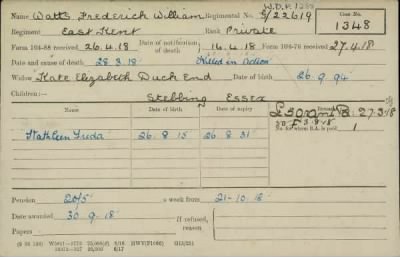 W.D.P. 1288
Name Watts Frederick William Regimental No. G/22619 Case No.
Regiment East Kent Rank Private 1348
Form 104-88 received 26.4.18 Date of notification of death 14.4.18 Form 104-76 received 27.4.18
Date and cause of death 28.3.18 Killed in Action
Widow Kate Elizabeth Duck End Date of birth 26.9.94
Children:— Stebbing Essex
Name Date of birth Date of expiry Remarks
27.3.18
No. for whom S.A. is paid 1
Kathleen Freda 26.8.15 26.8.31
Pension 20/5 a week from 21-10-18
Date awarded 30.9.18 If refused, reason
Papers